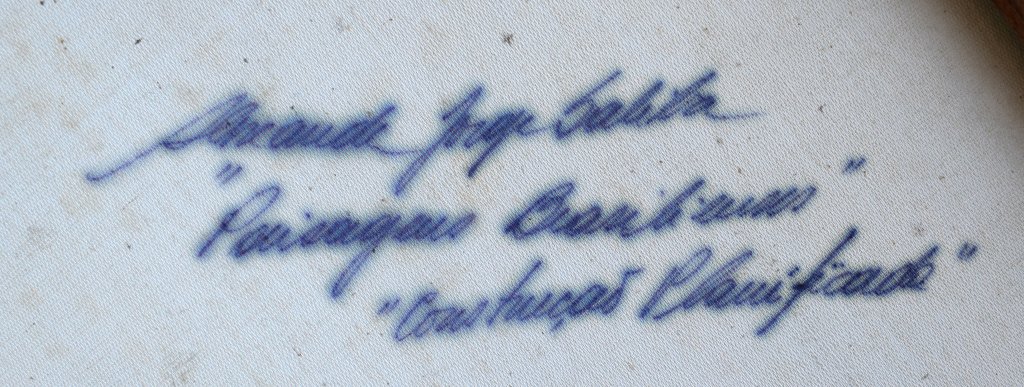 Jorge Saliba
"Paisagens Brasileiras"
"Construção Planificada"